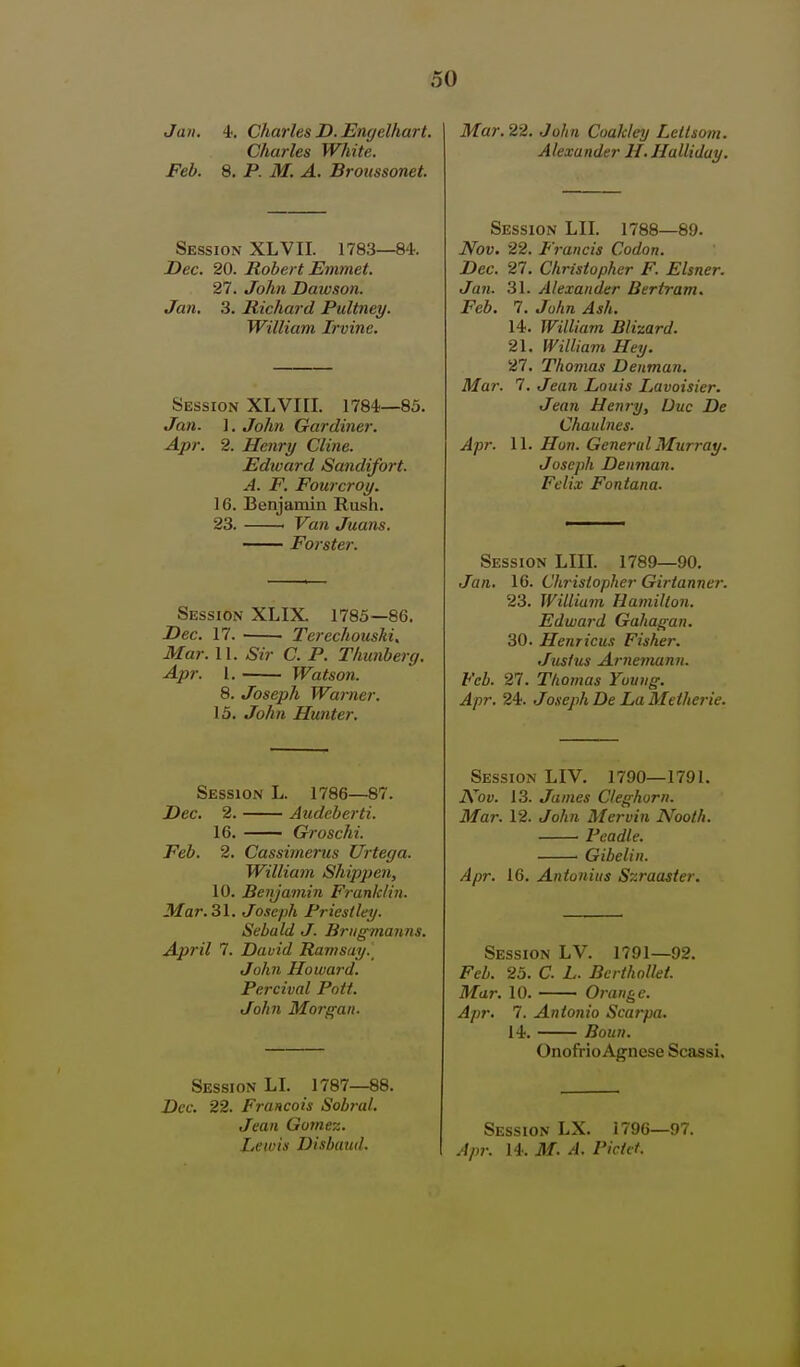 50
Jan. 4. Charles D. Engelhart.
Charles White.
Feb. 8. P. M. A. Broussonet.
Session XLVII. 1783—84.
Dec. 20. Robert Emmet.
27. John Dawson.
Jan. 3. Richard Pultney.
William Irvine.
Session XLVIII. 1784—85.
Jan. 1. John Gardiner.
Apr. 2. Henry Cline.
Edward Sandifort.
A. F. Fourcroy.
16. Benjamin Rush.
23. —— Van Juans.
—— Forster.
Session XLIX. 1785—86.
Dec. 17. —— Terechouski.
Mar. 11. Sir C. P. Thunberg.
Apr. 1. —— Watson.
8. Joseph Warner.
15. John Hunter.
Session L. 1786—87.
Dec. 2. —— Audeberti.
16. —— Groschi.
Feb. 2. Cassimerus Urtega.
William Shippen,
10. Benjamin Franklin.
Mar. 31. Joseph Priestley.
Sebald J. Brugmanns.
April 7. David Ramsay.
John Howard.
Percival Pott.
John Morgan.
Session LI. 1787—88.
Dec. 22. Francois Sobral.
Jean Gomez.
Lewis Disbaud.
Mar. 22. John Coakley Lettsom.
Alexander H. Halliday.
Session LII. 1788—89.
Nov. 22. Francis Codon.
Dec. 27. Christopher F. Elsner.
Jan. 31. Alexander Bertram.
Feb. 7. John Ash.
14. William Blizard.
21. William Hey.
27. Thomas Denman.
Mar. 7. Jean Louis Lavoisier.
Jean Henry, Duc De
Chaulnes.
Apr. 11. Hon. General Murray.
Joseph Denman.
Felix Fontana.
Session LIII. 1789—90.
Jan. 16. Christopher Girtanner.
23. William Hamilton.
Edward Gahagan.
30. Henricus Fisher.
Justus Arnemann.
Feb. 27. Thomas Young.
Apr. 24. Joseph De La Metherie.
Session LIV. 1790—1791.
Nov. 13. James Cleghorn.
Mar. 12. John Mervin Nooth.
—— Peadle.
—— Gibelin.
Apr. 16. Antonius Szraaster.
Session LV. 1791—92.
Feb. 25. C. L. Berthollet.
Mar. 10. —— Orange.
Apr. 7. Antonio Scarpa.
14. —— Boun.
Onofrio Agnese Scassi.
Session LX. 1796—97.
Apr. 14. M. A. Pictet.